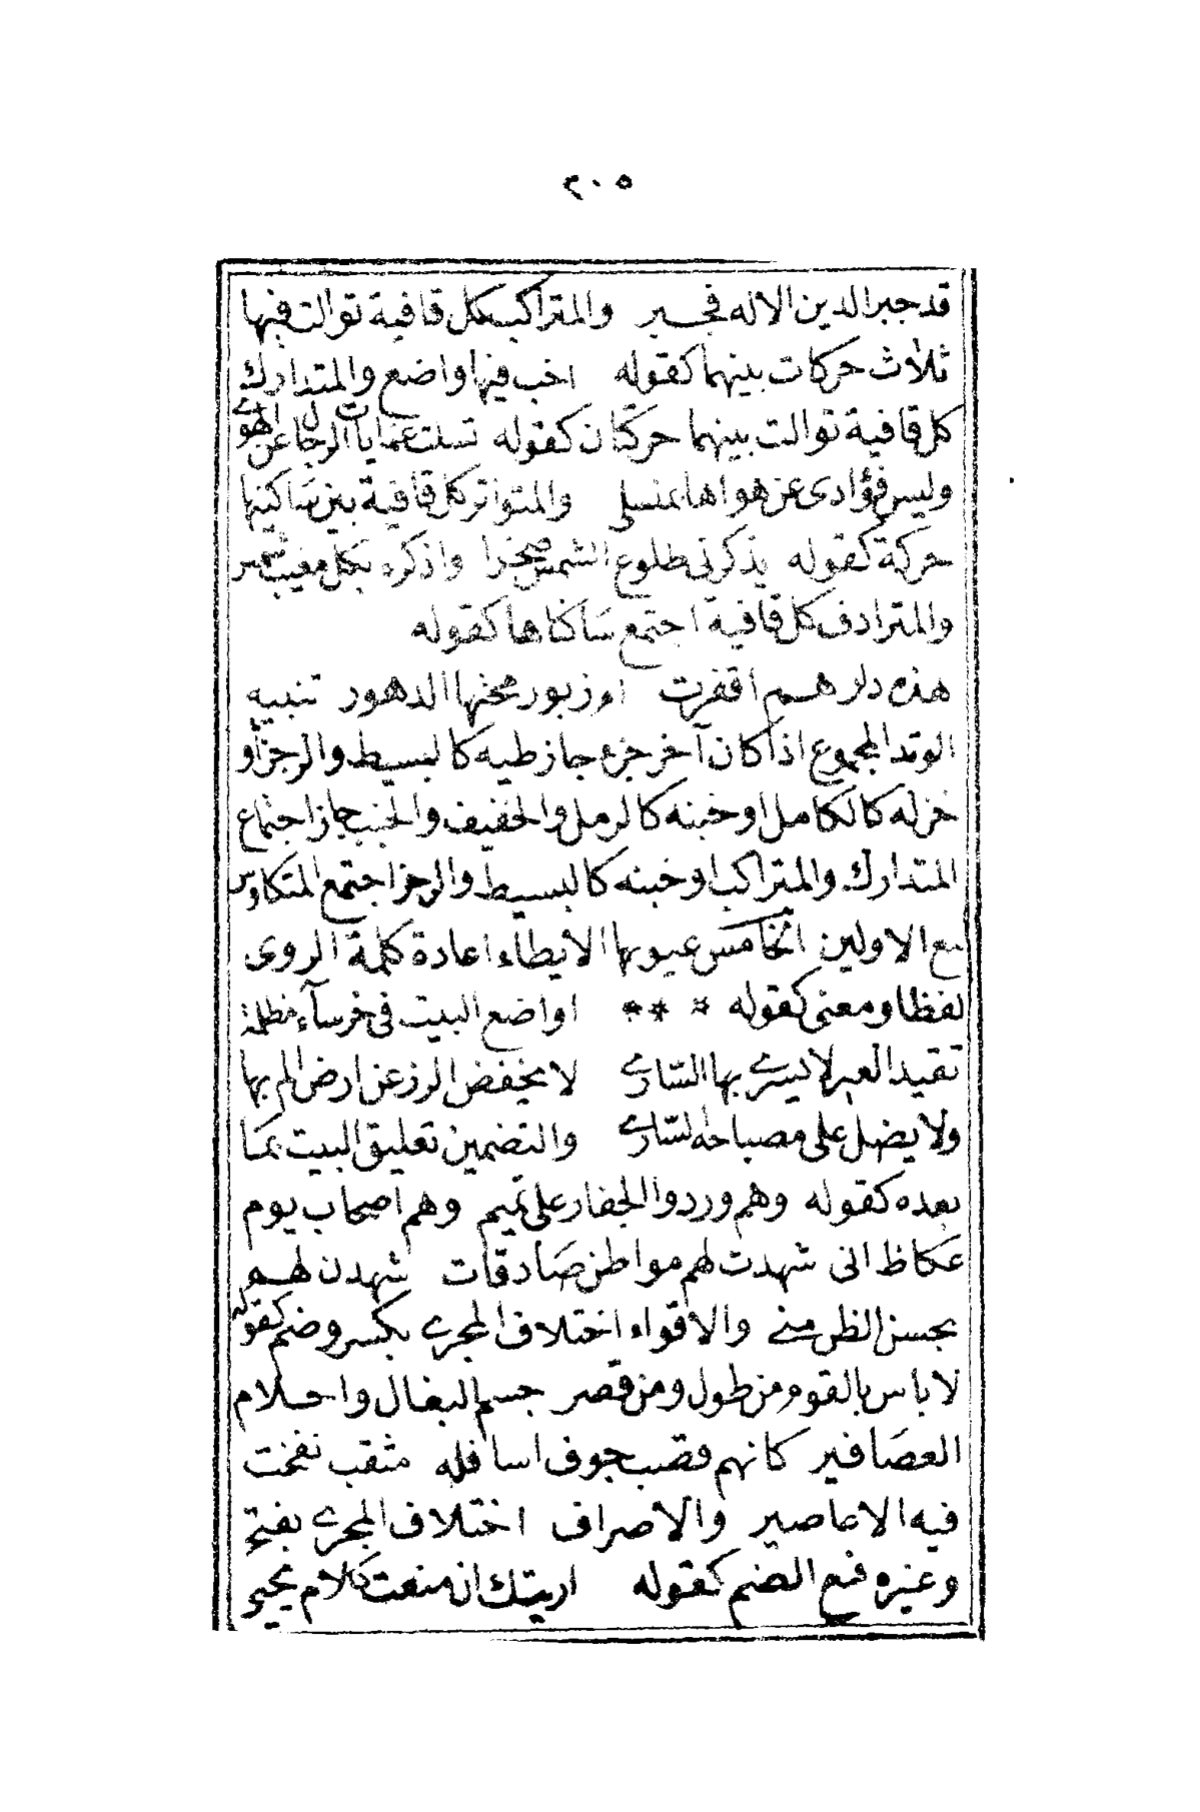 ٢٠٥
قد جبر الدين الاله فجبر والمتراكب كل قافية توالت فيها
ثلاث حركات بينهما كقوله اخب فيها واضع والمتدارك
كل قافية توالت بينهما حركتان كقوله تسلت عمايات الرجال عن الهوى
وليس فؤادى عن هواها بمنسلى والمتواتر كل قافية بين ساكنيها
حركة كقوله يذكرنى طلوع الشمس صخرا واذكره بكل مغيب شمس
والمترادف كل قافية اجتمع ساكناها كقوله
هذه دارهم اقفرت ام زبور محتها الدهور تنبيه
الوتد المجموع اذا كان آخر جزء جاز طيه كالبسيط والرجز او
خزله كالكامل او خبنه كالرمل والخفيف والخبب جاز اجتماع
المتدارك والمتراكب او خبنه كالبسيط والرجز اجتمع المتكاوس
مع الاولين الخامس عيوبها الايطاء اعادة كلمة الروى
لفظا ومعنى كقوله * ** اواضع البيت فى خرسآء مظلمة
تقيد العير لا يسرى بها السّارى لا يخفض الرز عن ارض الم بها
ولا يضل على مصباحه السّارى والتضمين تعليق البيت بما
بعده كقوله وهم وردوا الجفار على تميم وهم اصحاب يوم
عكاظ انى شهدت لهم مواطن صادقات شهدن لهم
بحسن الظن منى والاقواء اختلاف المجرى بكسر وضم كقوله
لا باس بالقوم من طول ومن قصر جسم البغال واحلام
العصافير كانهم قصب جوف اسافله مثقب نفخت
فيه الاعاصير والاصراف اختلاف المجرى بفتح
وغيره فمع الضم كقوله اريتك ان منعت كلام يحيى